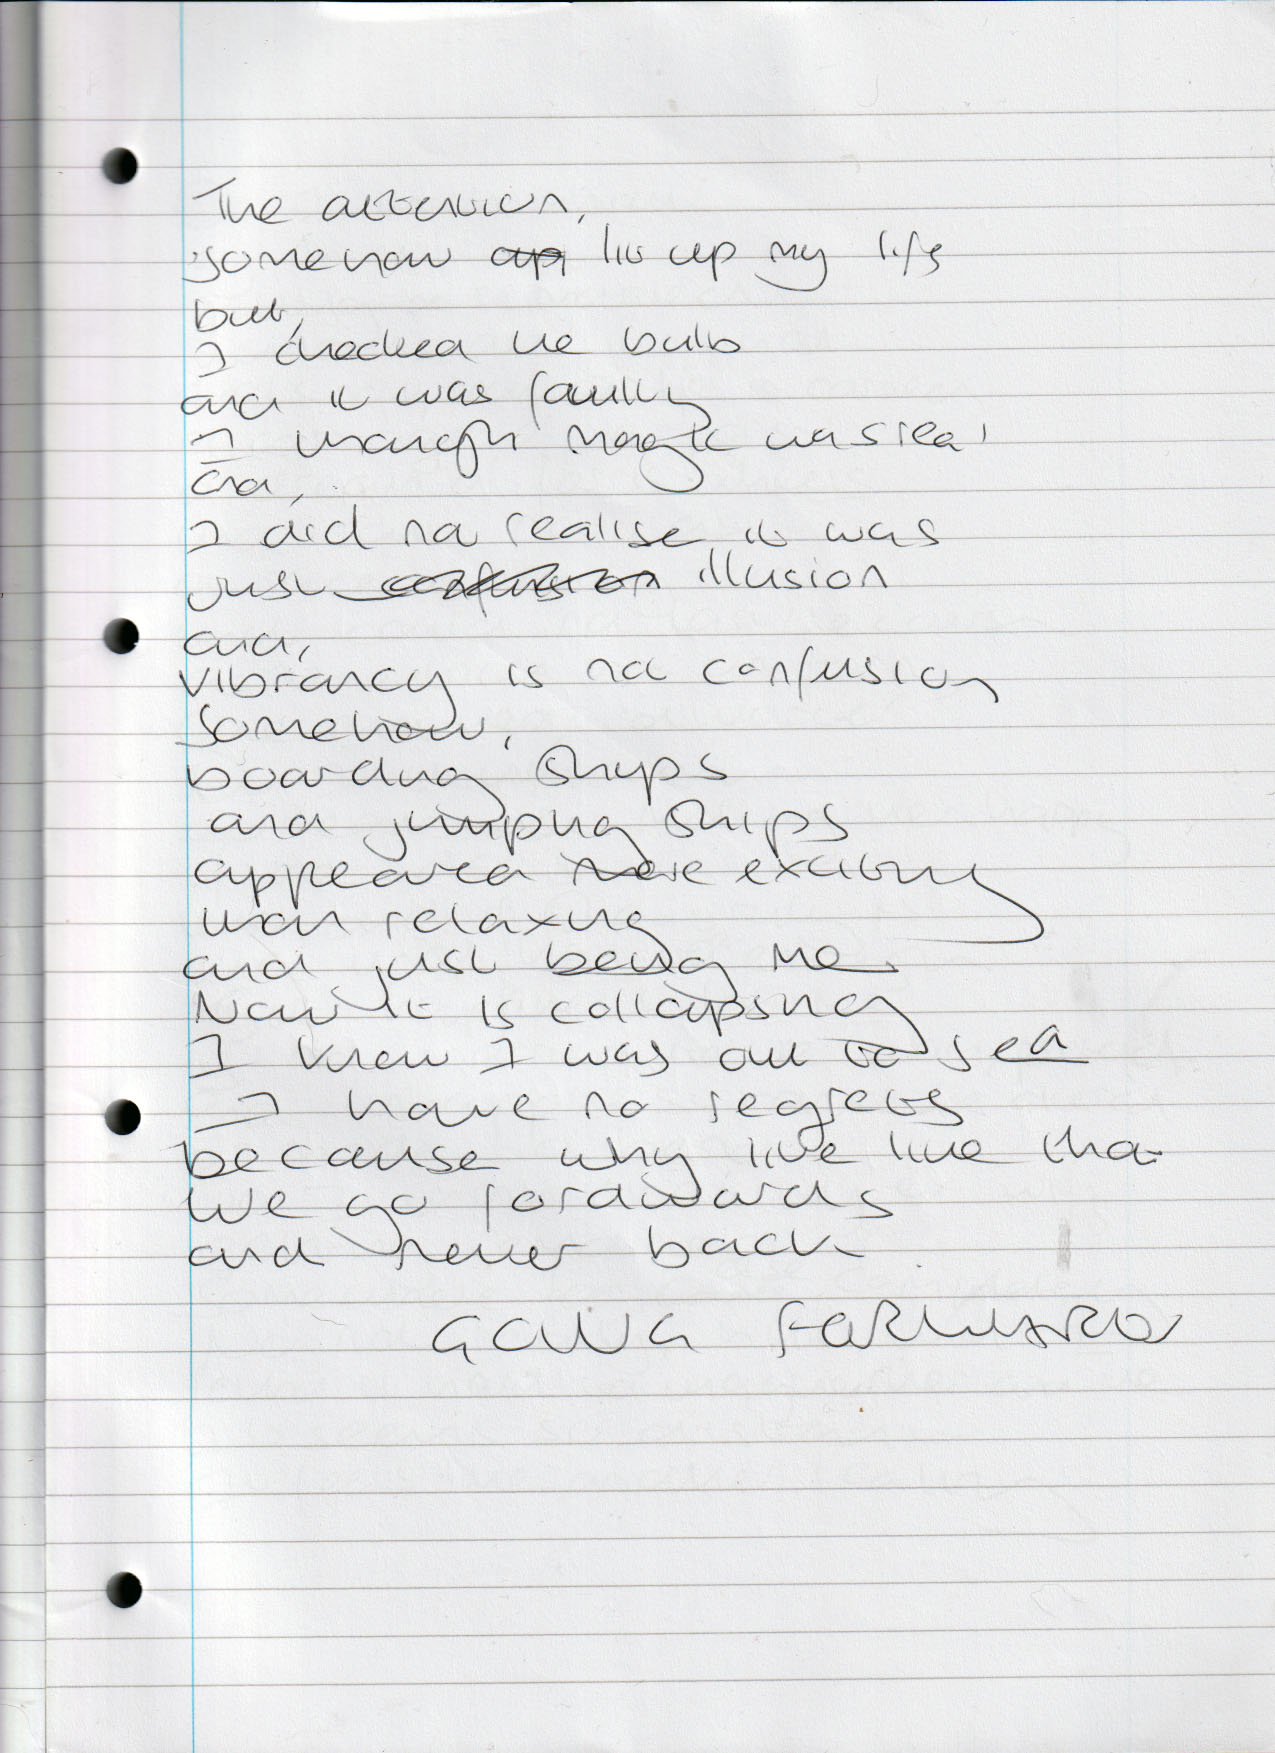 The attention,
somehow lit up my life
but,
I checked the bulb
and it was faulty
I thought magic was real
and,
I did not realise it was
just confusion illusion
and,
vibrancy is not confusion
somehow,
boarding ships
and jumping ships
appeared more exciting
than relaxing
and just being me.
Now it is collapsing
I knew I was out to sea
I have no regrets
because why live like that
We go forwards
and never back.
GOING FORWARD